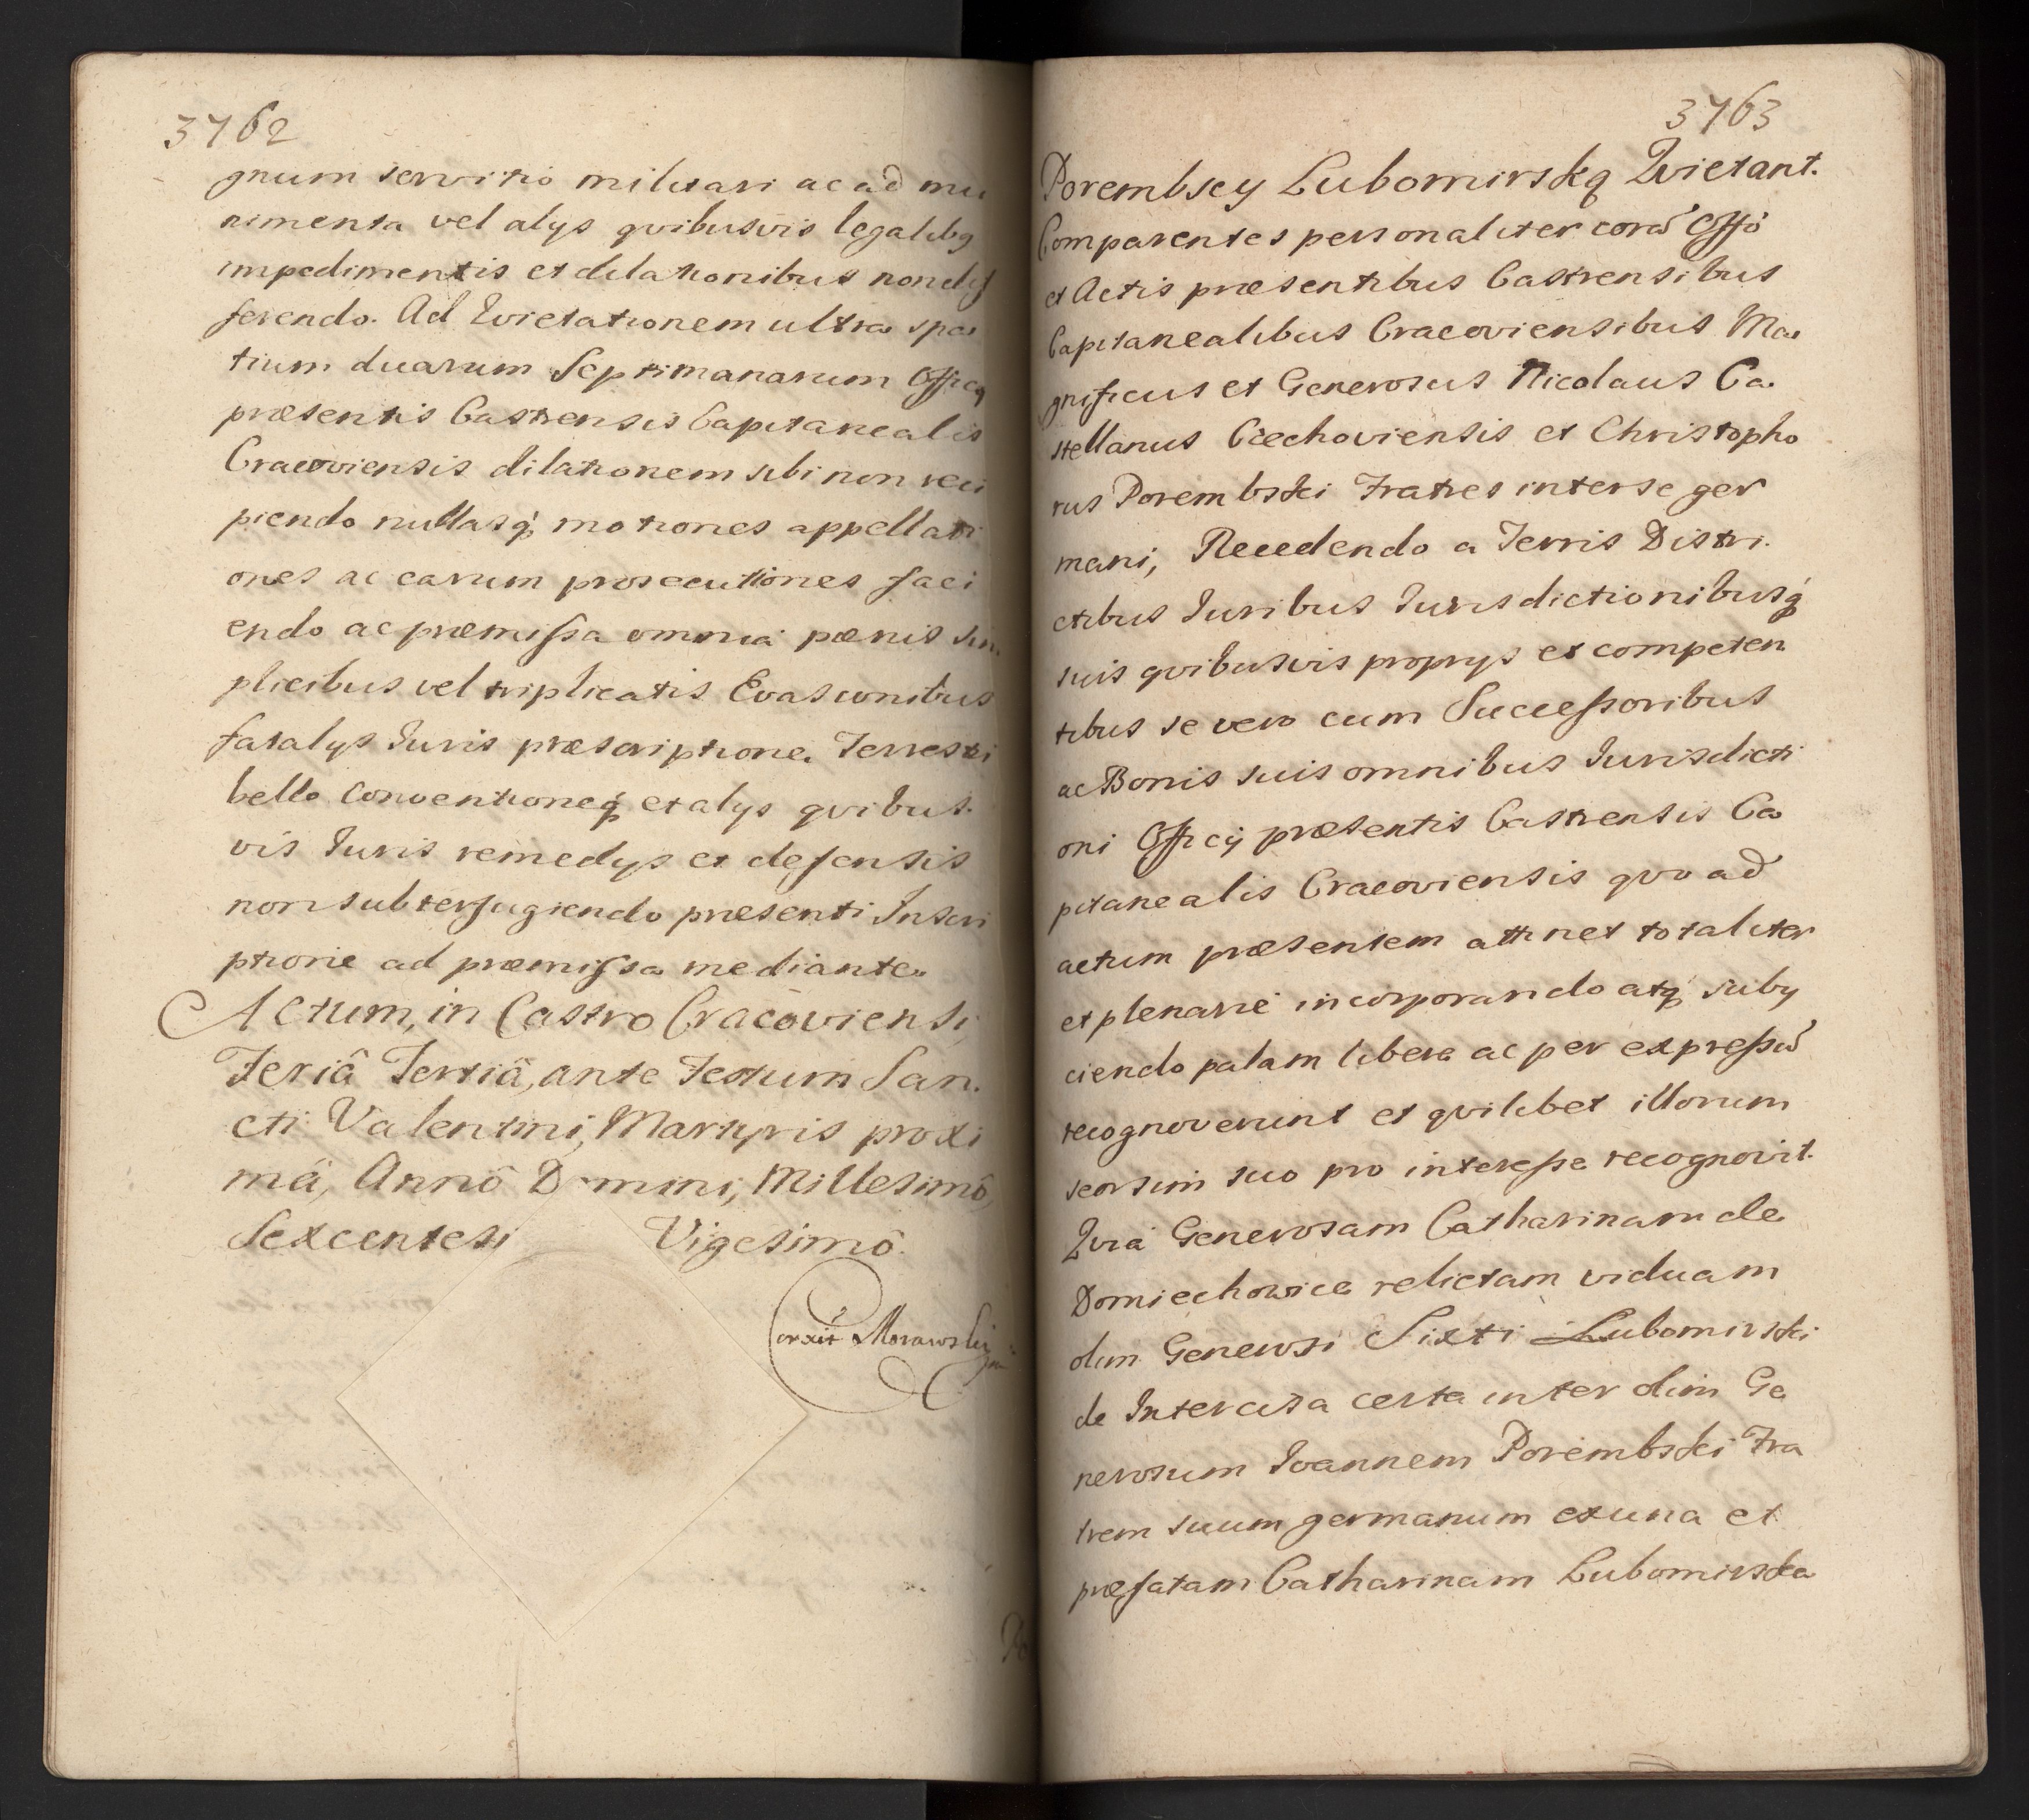 3762
gnum servitio militari ac ad mu
nimenta vel alys qvibusvis legalibq
impedimentis et dilationibus non dif
ferendo. Ad Qvietationem ultra spa
tium duarum Septimanarum Officÿ
præsentis Castrensis Capitanealis
Cracoviensis dilationem sibi non reci
piendo nullasq́; motiones appellati
ones ac earum prosecutiones faci
endo ac præmissa omnia pænis sim
plicibus vel triplicatis Evasionibus
fatalys Iuris præscriptione Terrestri
bello Conventioneq́; et alys qvibus
vis Iuris remedys et defensis
non subterfugiendo præsenti Inscri
ptione ad præmissa mediante.
Actum, in Castro Cracoviensi,
Feriâ Tertiâ, ante Festum San.
cti Valentini, Martyris proxi
mâ, Annô Domini, Millesimô,
Sexcentesi Vigesimô.
Corxit Morawski
Po
3763
Porembscy Lubomirską Qvietant.
Comparentes personaliter corā Offō
et Actis præsentibus Castrensibus
Capitanealibus Cracoviensibus Ma
gnificus et Generosus Nicolaus Ca.
stellanus Ciechoviensis et Christopho
rus Porembski Fratres inter se ger
mani, Recedendo a Terris Distri.
ctibus Iuribus Iurisdictionibusq́;
suis qvibusvis proprys et competen
tibus se vero cum Successoribus
ac Bonis suis omnibus Iurisdicti
oni Officÿ præsentis Castrensis Ca
pitanealis Cracoviensis qvo ad
actum præsentem attinet totaliter
et plenarie incorporando atq́; suby
ciendo palam libere ac per expressū
recognoverunt et qvilibet illorum
seorsim suo pro interesse recognovit.
Qvia Generosam Catharinam de
Domiechowice relictam viduam
olim Generosi Sixti Lubomirski
de Intercisa certa inter olim Ge
nerosum Ioannem Porembski Fra
trem suum germanum ex una et
præfatam Catharinam Lubomirska